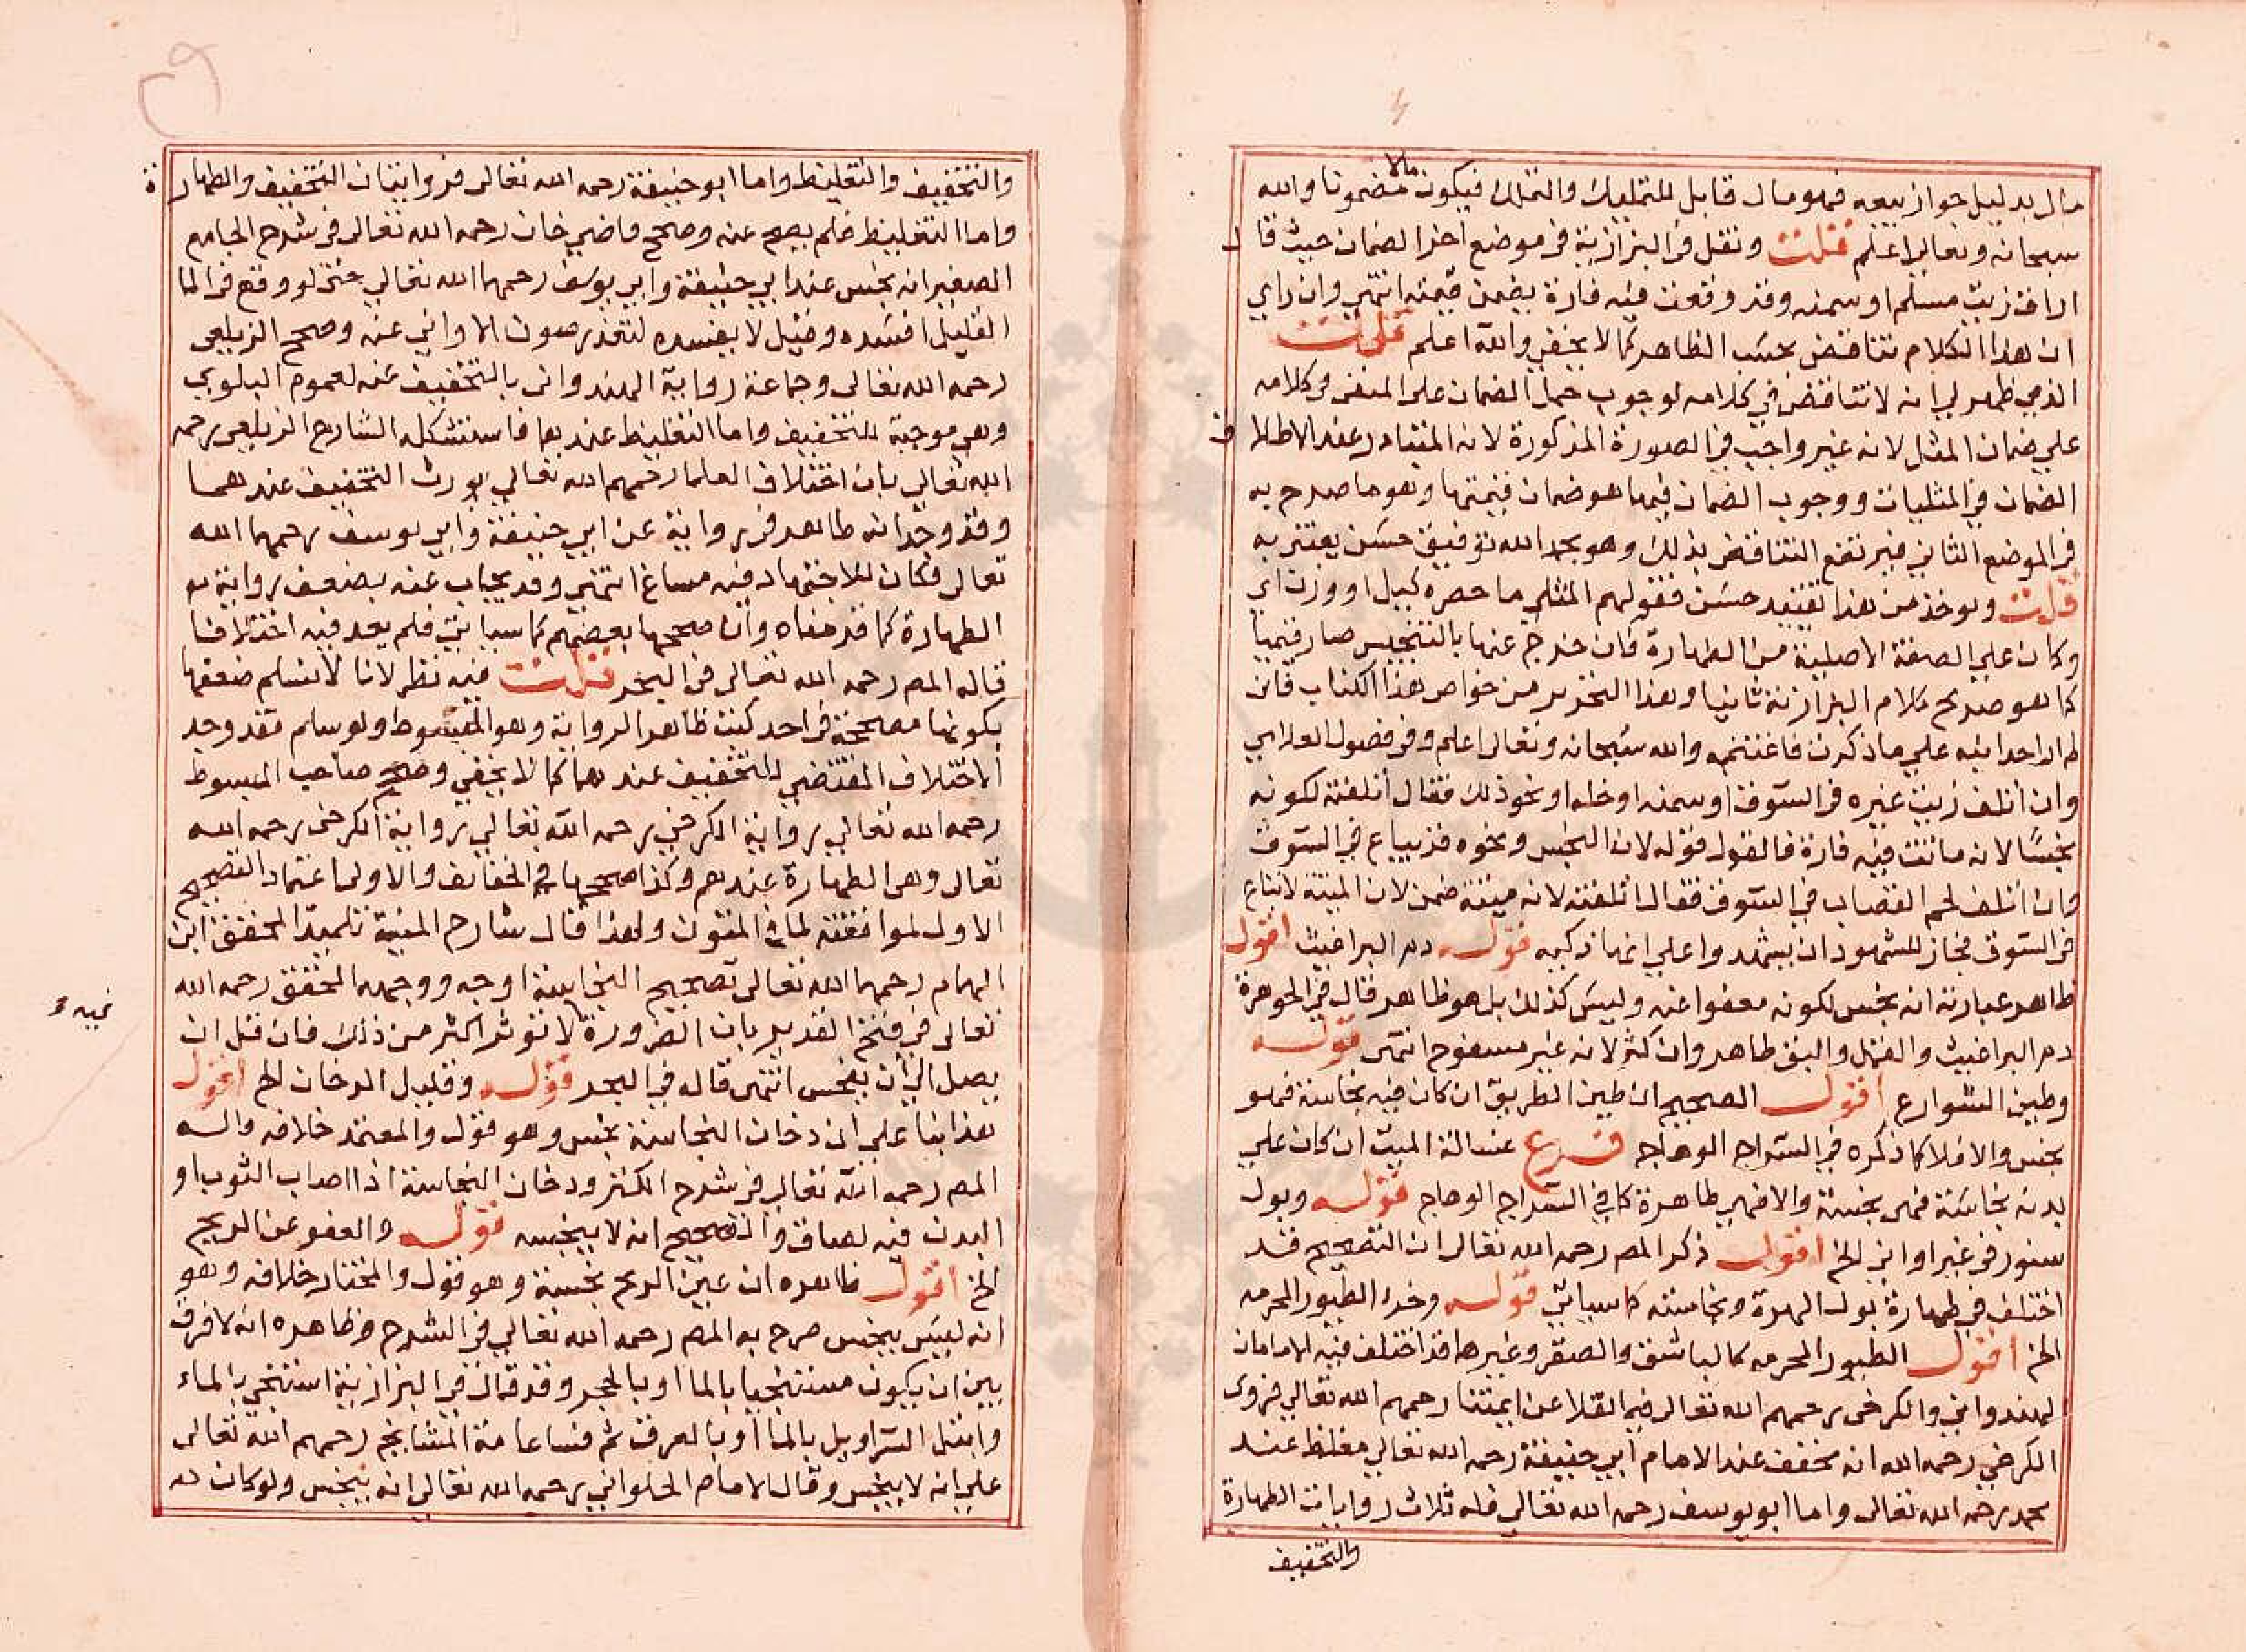 مال بدليل جواز بيعه فهو مال قابل للتمليك والتملك فيكون مالا مضمونا والله
سبحانه وتعالى اعلم قلت ونقل في البزازية في موضع اخر الضمان حيث قال
اراق زيت مسلم او سمنه وقد وقعت فيه فارة يضمن قيمته انتهى وان راى
ان هذا الكلام تناقض بحسب الظاهر كما لا يخفى والله اعلم قلت
الذي ظهر لي انه لا تناقض في كلامه لوجوب حمل الضمان على المنفي في كلامه
على ضمان المثل لانه غير واجب في الصورة المذكورة لانه المتبادر عند الاطلاق
الضمان في المثليات ووجوب الضمان فيها هو ضمان قيمتها وهو ما صرح به
في الموضع الثاني فيرتفع التناقض بذلك وهو بحمد الله توفيق حسن يعتبر به
قلت ويوخذ من هذا تقييد حسن فقولهم المثلي ما حصره كيل او وزن اي
وكان على الصفة الاصلية من الطهارة فان خرج عنها بالتنجيس صار قيميا
كما هو صريح كلام البزازية ثانيا وهذا التحرير من خواص هذا الكتاب فاني
لم ار احدا نبه على ما ذكرت فاغتنمه والله سبحانه وتعالى اعلم وفي فصول العلايي
وان اتلف زيت غيره في السوق او سمنه او خله او نحو ذلك فقال اتلفته لكونه
نجسا لانه ماتت فيه فارة فالقول قوله لان النجس ونحوه قد يباع في السوق
وان اتلف لحم القصاب في السوق فقال اتلفته لانه ميتة ضمن لان الميتة لا تباع
في السوق فجاز للشهود ان يشهدوا على انها ذكيه قوله دم البراغيث اقول
ظاهر عبارته انه نجس لكونه معفوا عنه وليس كذلك بل هو ظاهر قال في الجوهرة
دم البراغيث والقمل والبق طاهر وان كثر لانه غير مسفوح انتهى قوله
وطين الشوارع اقول الصحيح ان طين الطريق ان كان فيه نجاسة فهو
نجس والا فلا كما ذكره في السراج الوهاج فرع غسالة الميت ان كان على
بدنه نجاسة فهى نجسة والا فهى طاهرة كما في السراج الوهاج قوله وبول
سنور في غير اواني الخ اقول ذكر المص رحمه الله تعالى ان التصحيح قد
اختلف في طهارة بول الهرة ونجاسته كما سياتي قوله وخرء الطيور المحرمه
الخ اقول الطيور المحرمه كالباشق والصقر وغيرها قد اختلف فيه الامامان
لهندواني والكرخي رحمهم الله تعالى فيما نقلا عن ايمتنا رحمهم الله تعالى فروى
الكرخي رحمه الله انه مخفف عند الامام ابي حنيفة رحمه الله تعالى مغلظ عند
محمد رحمه الله تعالى واما ابو يوسف رحمه الله تعالى فله ثلاث روايات الطهارة
والتخفيف
والتخفيف والتغليظ واما ابو حنيفة رحمه الله تعالى فروايتان التخفيف والطهارة
واما التغليظ فلم يصح عنه وصحح قاضي خان رحمه الله تعالى في شرح الجامع
الصغير انه نجس عند ابي حنيفة وابي يوسف رحمهما الله تعالى حتى لو وقع في الما
القليل افسده وقيل لا يفسده لتعذر صون الاواني عنه وصحح الزيلعي
رحمه الله تعالى وجماعة رواية الهندواني بالتخفيف عنه لعموم البلوى
وهي موجبة للتخفيف واما التغليظ عندهما فاستشكله الشارح الزيلعي رحمه
الله تعالى بان اختلاف العلما رحمهم الله تعالى يورث التخفيف عندهما
وقد وجد انه طاهر في رواية عن ابي حنيفة وابي يوسف رحمهما الله
تعالى فكان للاجتهاد فيه مساغ انتهى وقد يجاب عنه بضعف رواية
الطهارة كما قدمناه وان صححها بعضهم كما سياتي فلم يعد فيه اختلافا
قاله المص رحمه الله تعالى في البحر قلت فيه نظر لانا لا نسلم ضعفها
بكونها مصححة في احد كتب ظاهر الرواية وهو المبسوط ولو سلم فقد وجد
الاختلاف المقتضي للتخفيف عندهما كما لا يخفى وصحح صاحب المبسوط
رحمه الله تعالى رواية الكرخي رحمه الله تعالى رواية الكرخي رحمه الله
تعالى وهى الطهارة عندهم وكذا صححها في الحقائق والاولى اعتماد التصحيح
الاول لموافقته لما في المتون ولهذا قال شارح المنية تلميذ المحقق ابن
الهمام رحمهما الله تعالى تصحيح النجاسة اوجه ووجهه المحقق رحمه الله
تعالى في فتح القدير بان الضرورة لا توثر اكثر من ذلك فان قيل ان
يصل الى ان يفحش انتهى قاله في البحر قوله وقليل الدخان الخ اقول
هذا بنا على ان دخان النجاسة نجس وهو قول والمعتمد خلافه قاله
المص رحمه الله تعالى في شرح الكنز ودخان النجاسة اذا اصاب الثوب او
البدن فيه لصاق والصحيح انه لا ينجسه قوله والعفو عن الريح
الخ اقول ظاهره ان عين الريح نجسة وهو قول والمختار خلافه وهو
انه ليس بنجس صرح به المص رحمه الله تعالى في الشرح وظاهره انه لا فرق
بين ان يكون مستنجيا بالما او بالحجر وقد قال في البزازية استنجى بالماء
وابتل السراويل بالما او بالعرق ثم فسا عامة المشايخ رحمهم الله تعالى
على انه لا ينجس وقال الامام الحلواني رحمه الله تعالى انه ينجس ولو كان له